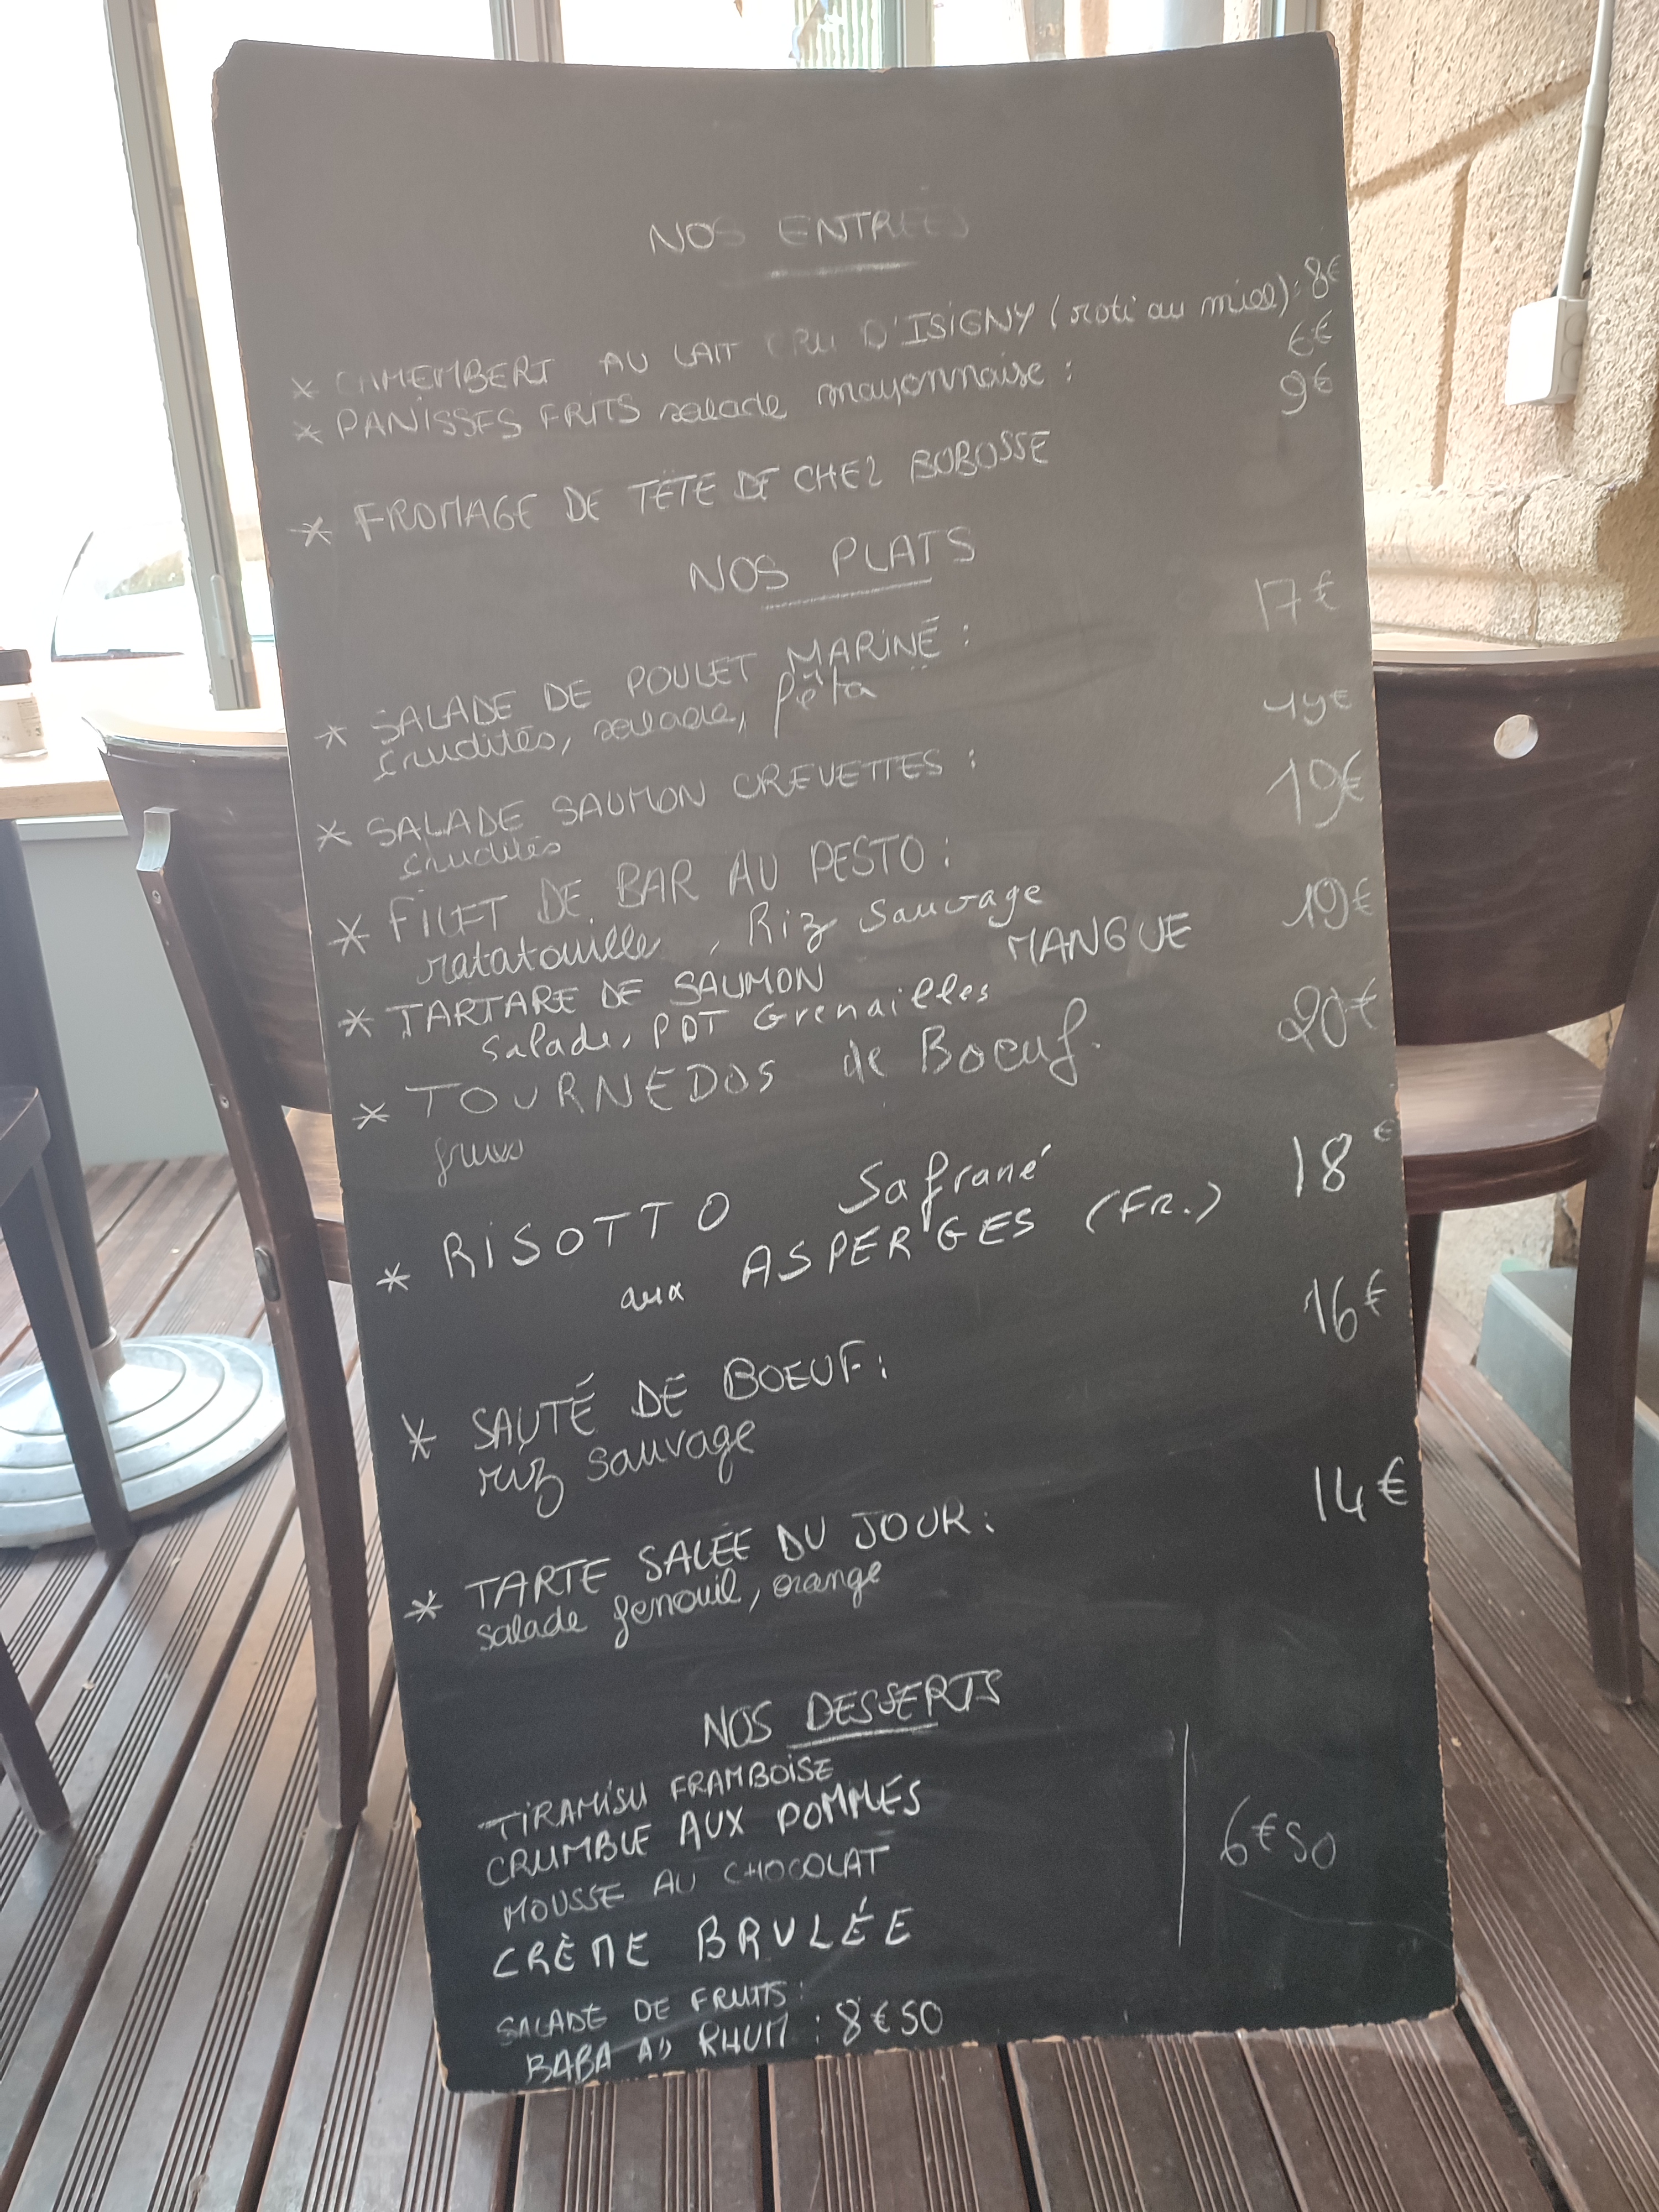 NOS ENTRÉES
* CAMEMBERT AU LAIT CRU D'ISIGNY (roti au miel): 8€
* PANISSES FRITS salade mayonnaise : 6€
* FROMAGE DE TÊTE DE CHEZ BOBOSSE 9€
NOS PLATS
* SALADE DE POULET MARINÉ : 17€
crudités, salade, fêta
* SALADE SAUMON CREVETTES : 19€
crudités
* FILET DE BAR AU PESTO : 19€
ratatouille, Riz Sauvage
* TARTARE DE SAUMON MANGUE 19€
salade, PDT Grenailles
* TOURNEDOS de Boeuf. 20€
* RISOTTO Safrané 18€
aux ASPERGES (FR.)
* SAUTÉ DE BOEUF : 16€
riz sauvage
* TARTE SALÉE DU JOUR : 14€
salade fenouil, orange
NOS DESSERTS
TIRAMISU FRAMBOISE
CRUMBLE AUX POMMES
MOUSSE AU CHOCOLAT 6€50
CRÈME BRULÉE
SALADE DE FRUITS :
BABA AU RHUM : 8€50